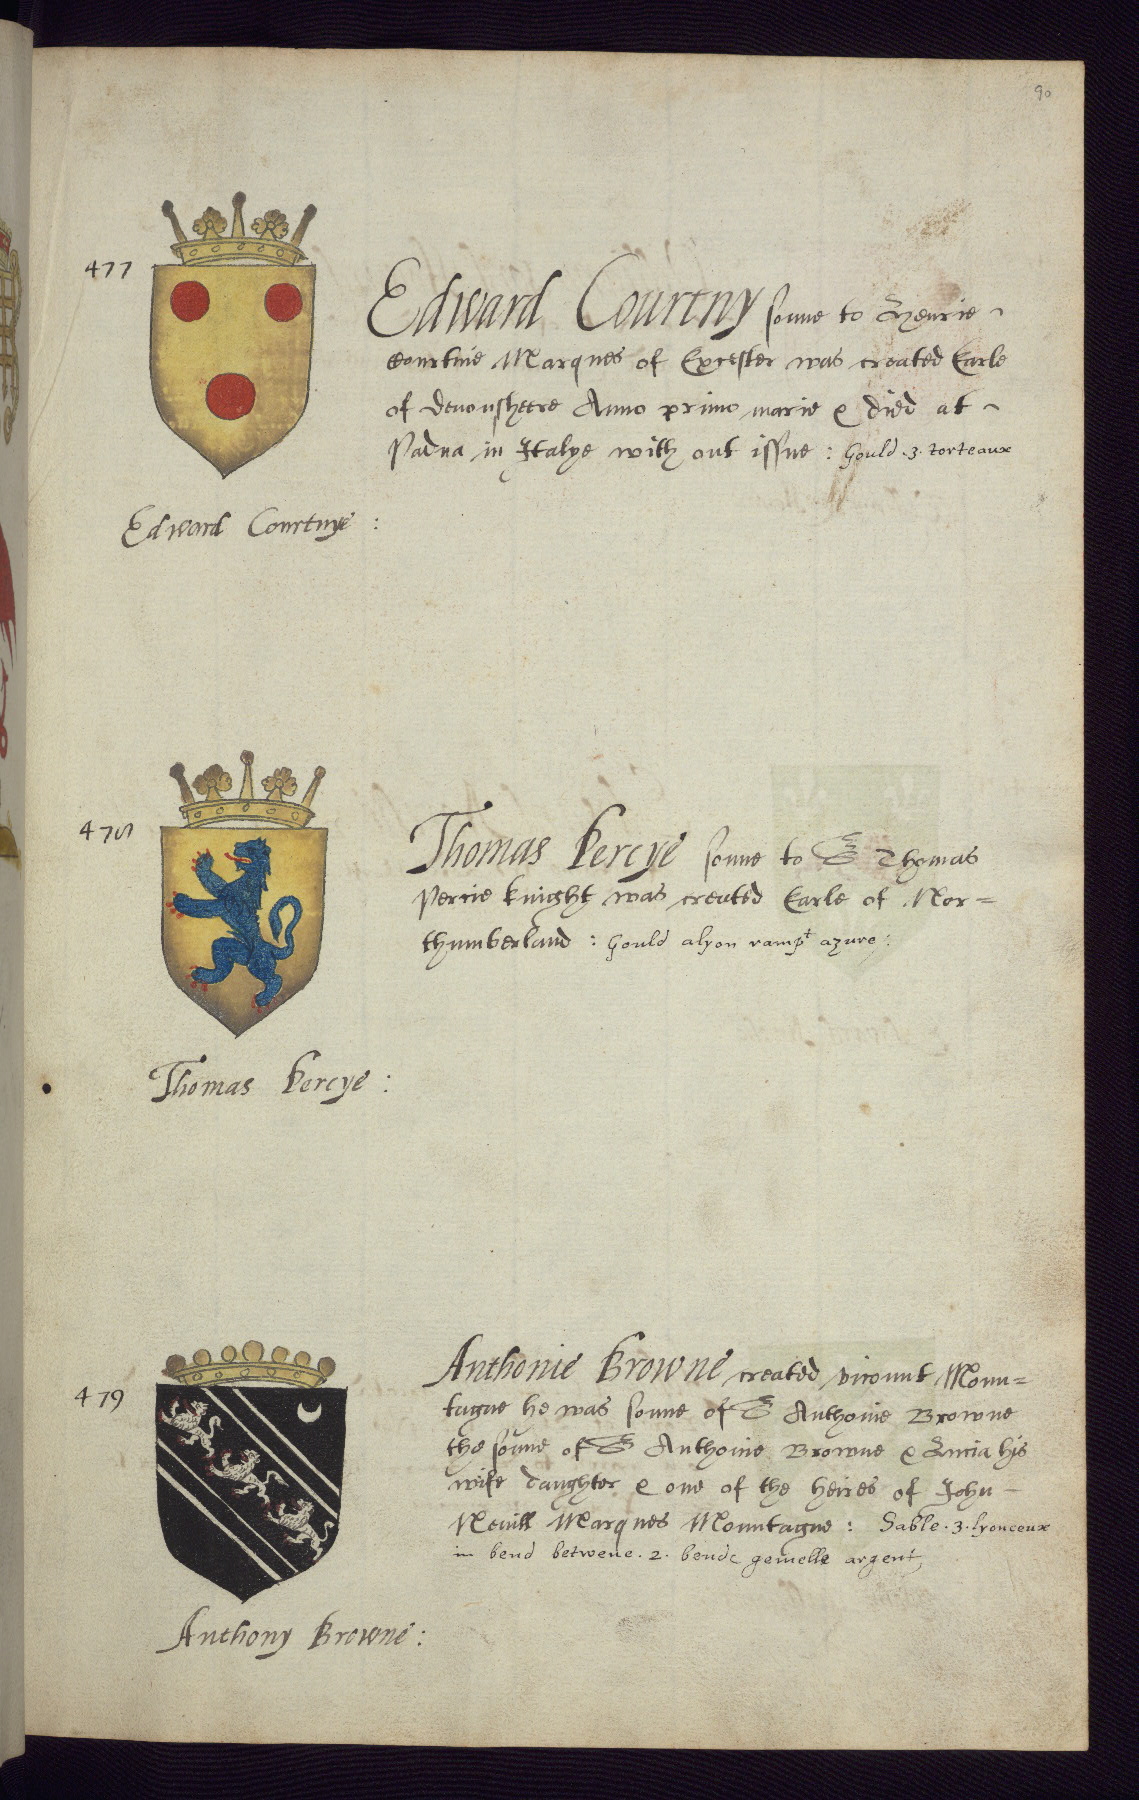 90
477
Edward Courtny sonne to Henrie
Courtnie Marques of Excester was created Earle
of Devonsheere Anno primo marie & died at
Padua in Italye with out issue : Gould .3. torteaux
Edward Courtnye :
478
Thomas Percye sonne to S Thomas
Percie knight was created Earle of Nor=
thumberland : Gould alyon rampt azure :
Thomas Percye :
479
Anthonie Browne created vicount Moun=
tague he was sonne of S Anthonie Browne
the sonne of S Anthonie Browne & Lucia his
wife daughter & one of the heires of John
Nevill Marques Mountague : Sable .3. lyonceux
in bend betwene .2. bende gemelle argent
Anthony Browne :